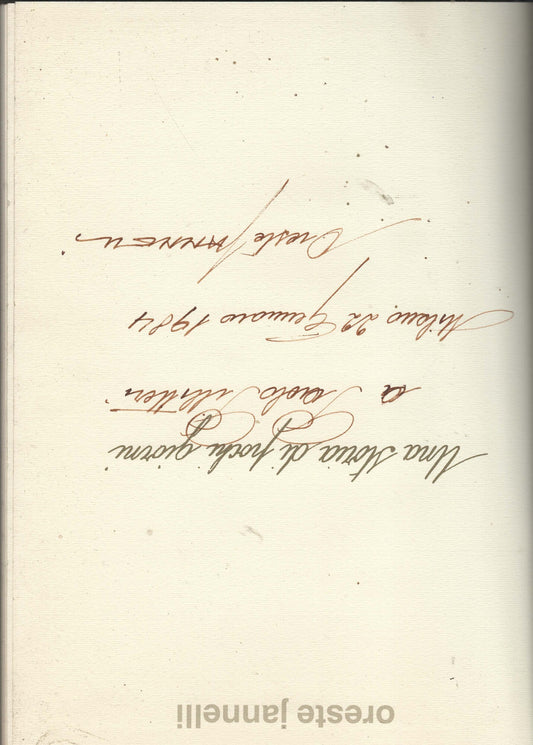 oreste jannelli
Una storia di pochi giorni
a Paolo
Milano 22 Gennaio 1984
Oreste Jannelli